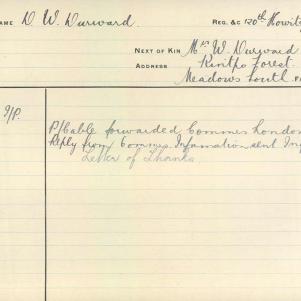 NAME D. W. Durward. REG. &C 120th Howitz
NEXT OF KIN Mrs W. Durward
ADDRESS Forest.
Meadows South P
P/Cable forwarded Commrs London
Reply from Comrs. Infamation sent
Letter of Thanks